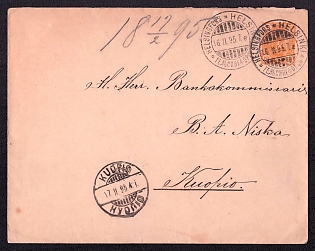 18 17/2 95
HELSINGFORS HELSINKI
16.II.95.7e
HELSINGFORS HELSINKI
16.II.95.7e
H. Herr. Bankokommissarie
B. A. Niska
Kuopio.
KUOPIO
17.II.95.4 I.
КУОПІО